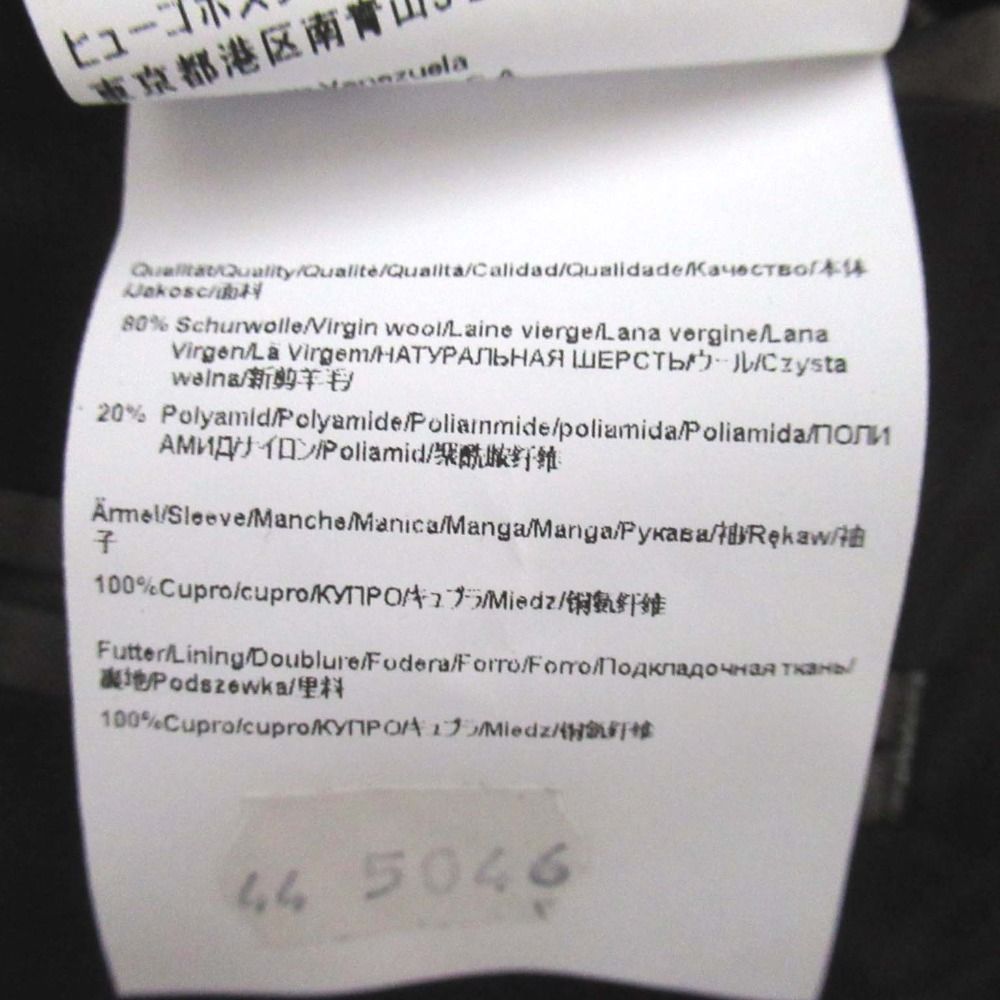 ヒューゴボス
東京都港区南青山5-
Venezuela
Qualität/Quality/Qualité/Qualità/Calidad/Qualidade/Качество/本体
/Jakosc/面料
80% Schurwolle/Virgin wool/Laine vierge/Lana vergine/Lana
Virgen/Lã Virgem/НАТУРАЛЬНАЯ ШЕРСТЬ/ウール/Czysta
welna/新剪羊毛/
20% Polyamid/Polyamide/Poliammide/poliamida/Poliamida/ПОЛИ
АМИД/ナイロン/Poliamid/聚酰胺纤维
Ärmel/Sleeve/Manche/Manica/Manga/Manga/Рукава/袖/Rękaw/袖
子
100%Cupro/cupro/КУПРО/キュプラ/Miedz/铜氨纤维
Futter/Lining/Doublure/Fodera/Forro/Forro/Подкладочная ткань/
裏地/Podszewka/里料
100%Cupro/cupro/КУПРО/キュプラ/Miedz/铜氨纤维
44 5046